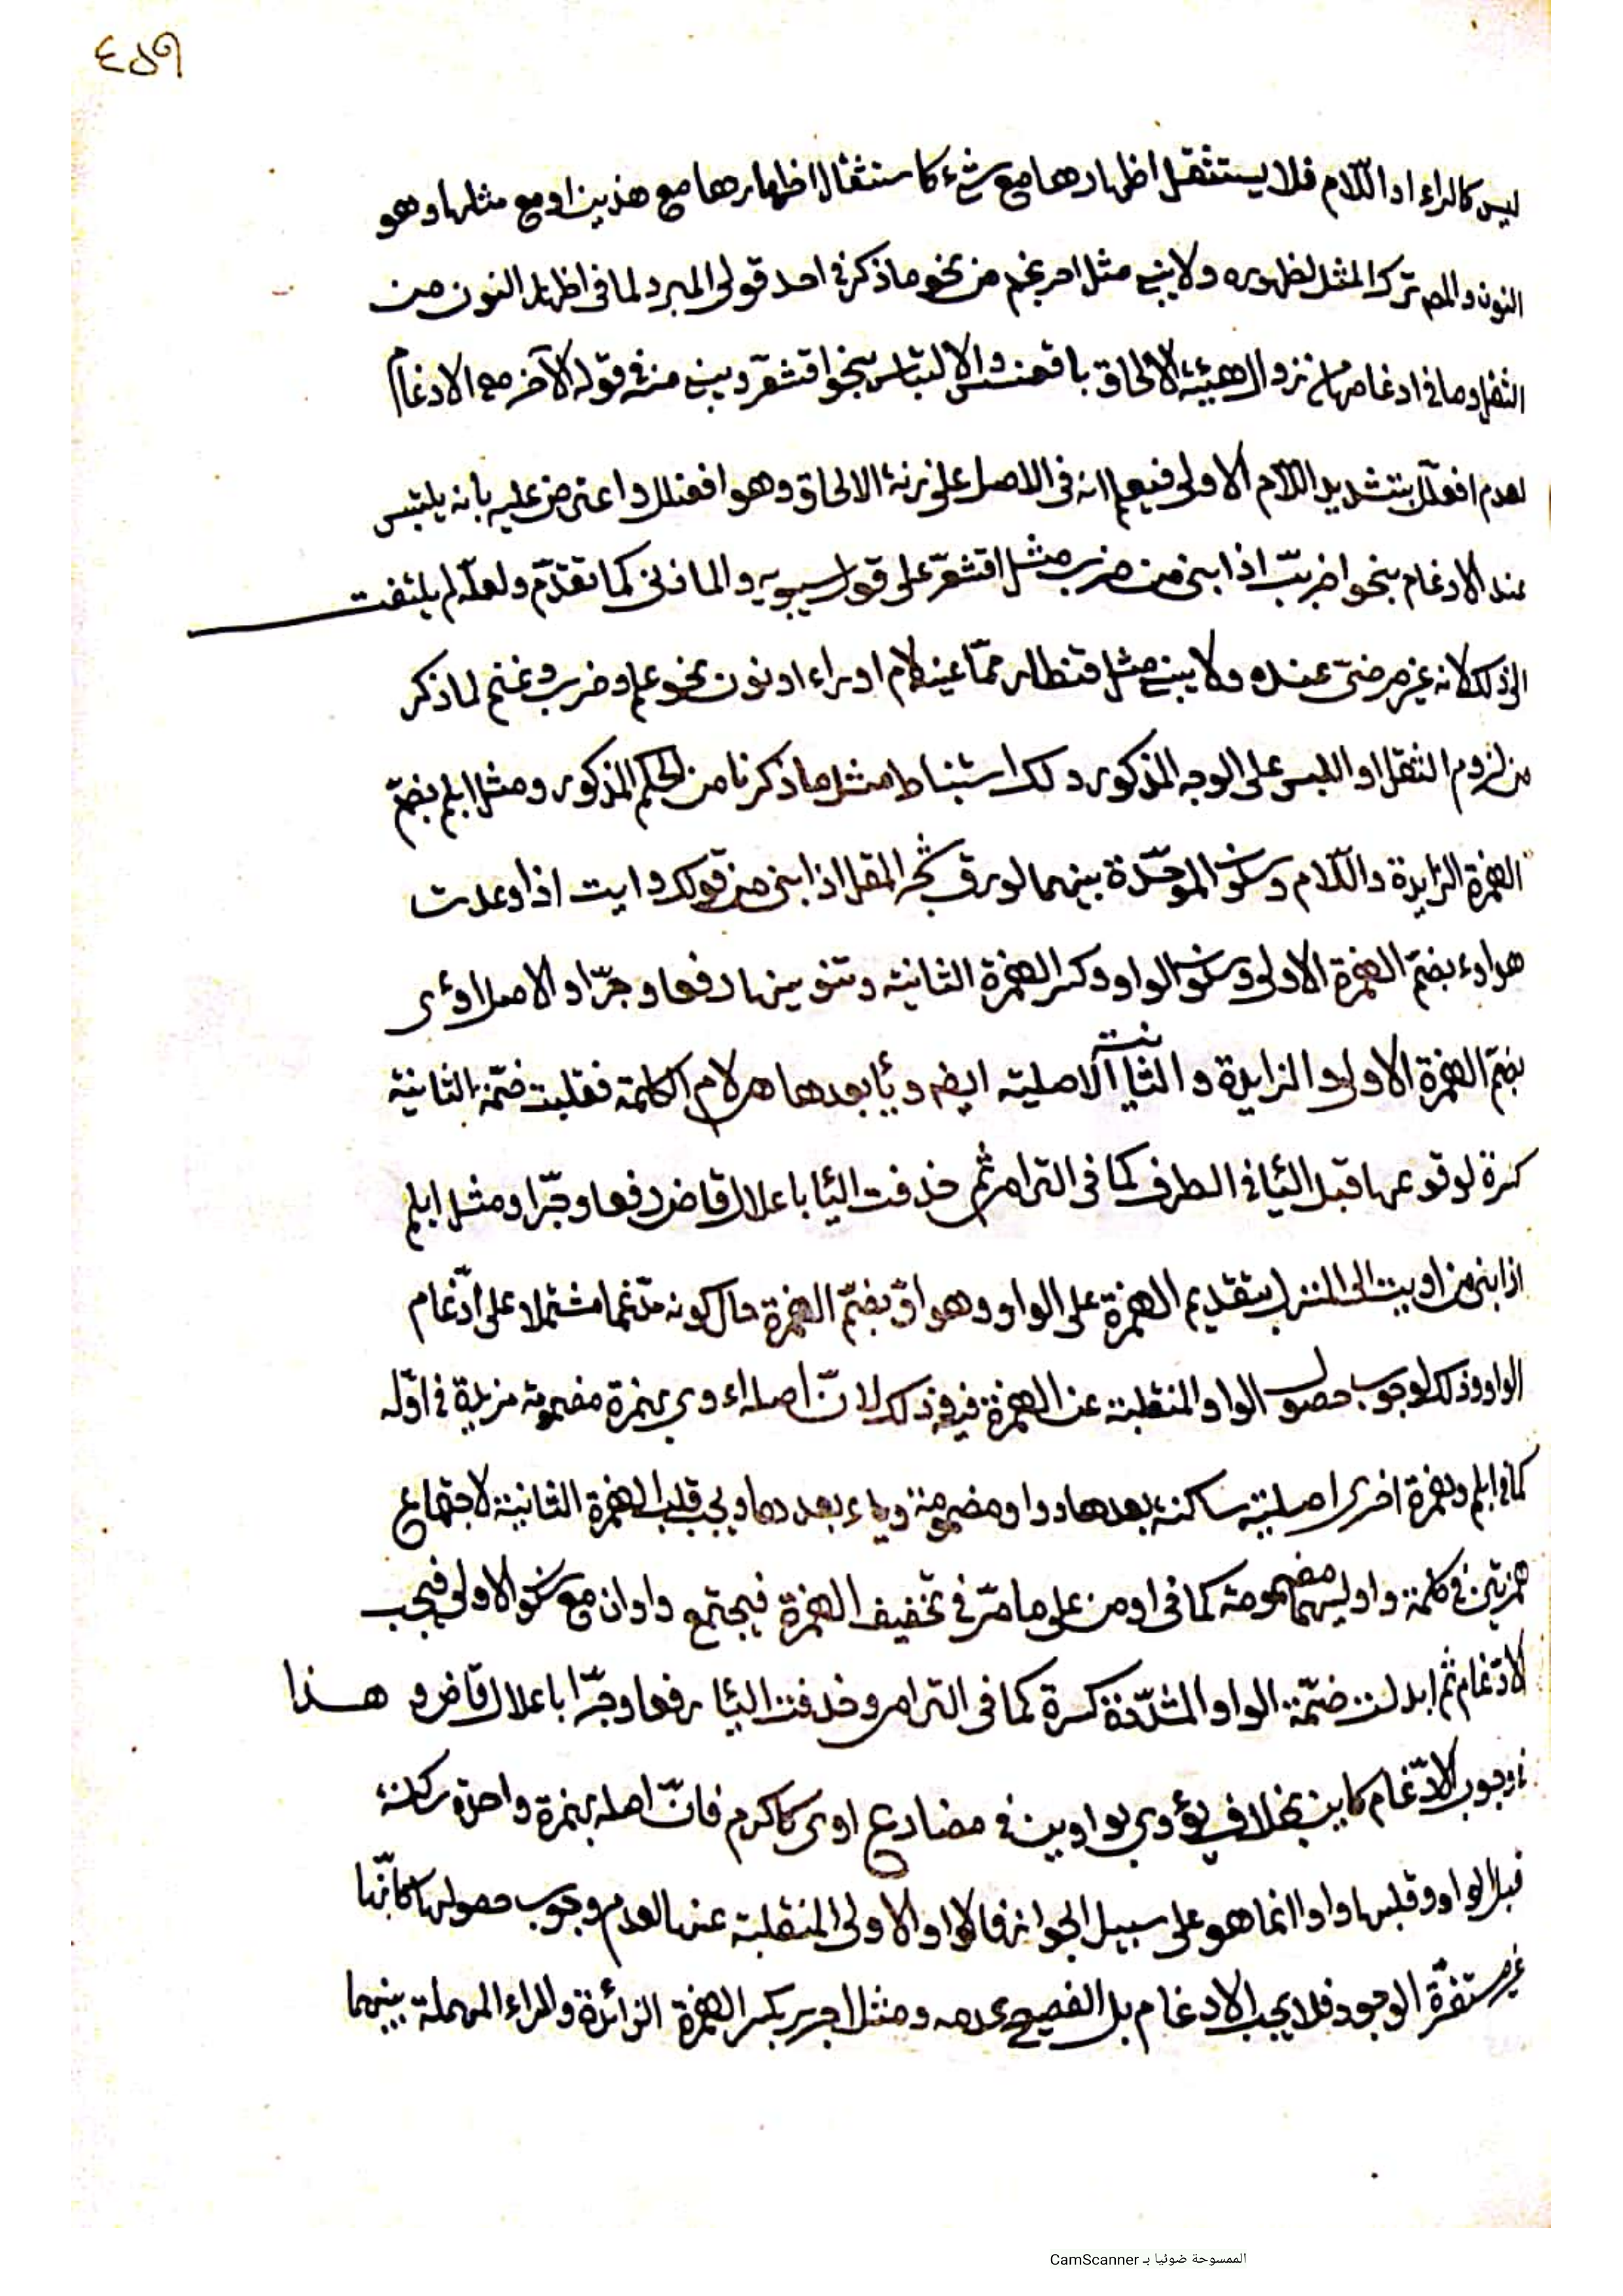 ٤٥٩
ليس كالراء او اللّام فلا يستثقل اظهارها مع شيء كاستثقال اظهارها مع هذين او مع مثلها وهو
النون والمص ترك المثل لظهوره ولا يبنى مثل احرنجم من نحو ما ذكر في احد قولى المبرد لما فى اظهار النون من
الثقل وما فى ادغامها من زوال هيئة الالحاق باقعنسس والالتباس بنحو اقشعرّ ويبنى منه فى قوله الآخر مع الادغام
لعدم افعلّل بتشديد اللّام الاولى فيعلم انه فى الاصل على زنة الالحاق وهو افعنلل واعترض عليه بانه يلتبس
عند الادغام بنحو اضربّب اذا بنى من ضرب مثل اقشعرّ على قول سيبويه والمازنى كما تقدّم ولعلّه لم يلتفت
الى ذلك لانه غير مرضىّ عنده ولا يبنى مثل قنطار ممّا عينه لام او راء او نون نحو علم وضرب وغنم لما ذكر
من لزوم الثقل او اللبس على الوجه المذكور ولك استنباط مثل ما ذكرنا من الحكم المذكور ومثل ابلم بضمّ
الهمزة الزايدة واللّام وسكون الموحّدة بينهما لورق شجر المقل اذا بنى من قولك وايت اذا وعدت
هو اوء بضمّ الهمزة الاولى وسكون الواو وكسر الهمزة الثانية وتنوينها رفعا وجرّا والاصل اوئى
بضمّ الهمزة الاولى والزايدة والثانية الاصلية ايضم ويا بعدها هى لام الكلمة فقلبت ضمّة الثانية
كسرة لوقوعها قبل اليا فى الطرف كما فى الترامى ثم حذفت اليا باعلال قاض رفعا وجرّا ومثل ابلم
اذا بنى من اويت الى المنزل بتقديم الهمزة على الواو وهو اوّ بضمّ الهمزة حال كونه مدّغما مشتملا على ادّغام
الواو وذلك لوجوب حصول الواو المنقلبة عن الهمزة فيه وذلك لانّ اصله اءوى بهمزة مضمومة مزيدة فى اوّله
كما فى ابلم وهمزة اخرى اصلية ساكنة بعدها وواو مضمومة وياء بعدها ويجب قلب الهمزة الثانية لاجتماع
همزتين فى كلمة واوليهما مضمومة كما فى اومن على ما مرّ فى تخفيف الهمزة فيجتمع واوان مع سكون الاولى فيجب
الادّغام ثم ابدلت ضمّة الواو المشدّدة كسرة كما فى الترامى وحذفت اليا رفعا وجرّا باعلال قاض و هذا
فى وجوب الادّغام كاين بخلاف يؤوى بواوين فى مضارع اوى كاكرم فانّ اصله بهمزة واحدة ساكنة
قبل الواو وقلبها واوا انما هو على سبيل الجواز فالواو الاولى المنقلبة عنها لعدم وجوب حصولها كانّها
غير مستقرّة الوجود فلا يجب الادغام بل الفصيح عدمه ومثل اجرد بكسر الهمزة الزائدة والراء المهملة بينهما
الممسوحة ضوئيا بـ CamScanner